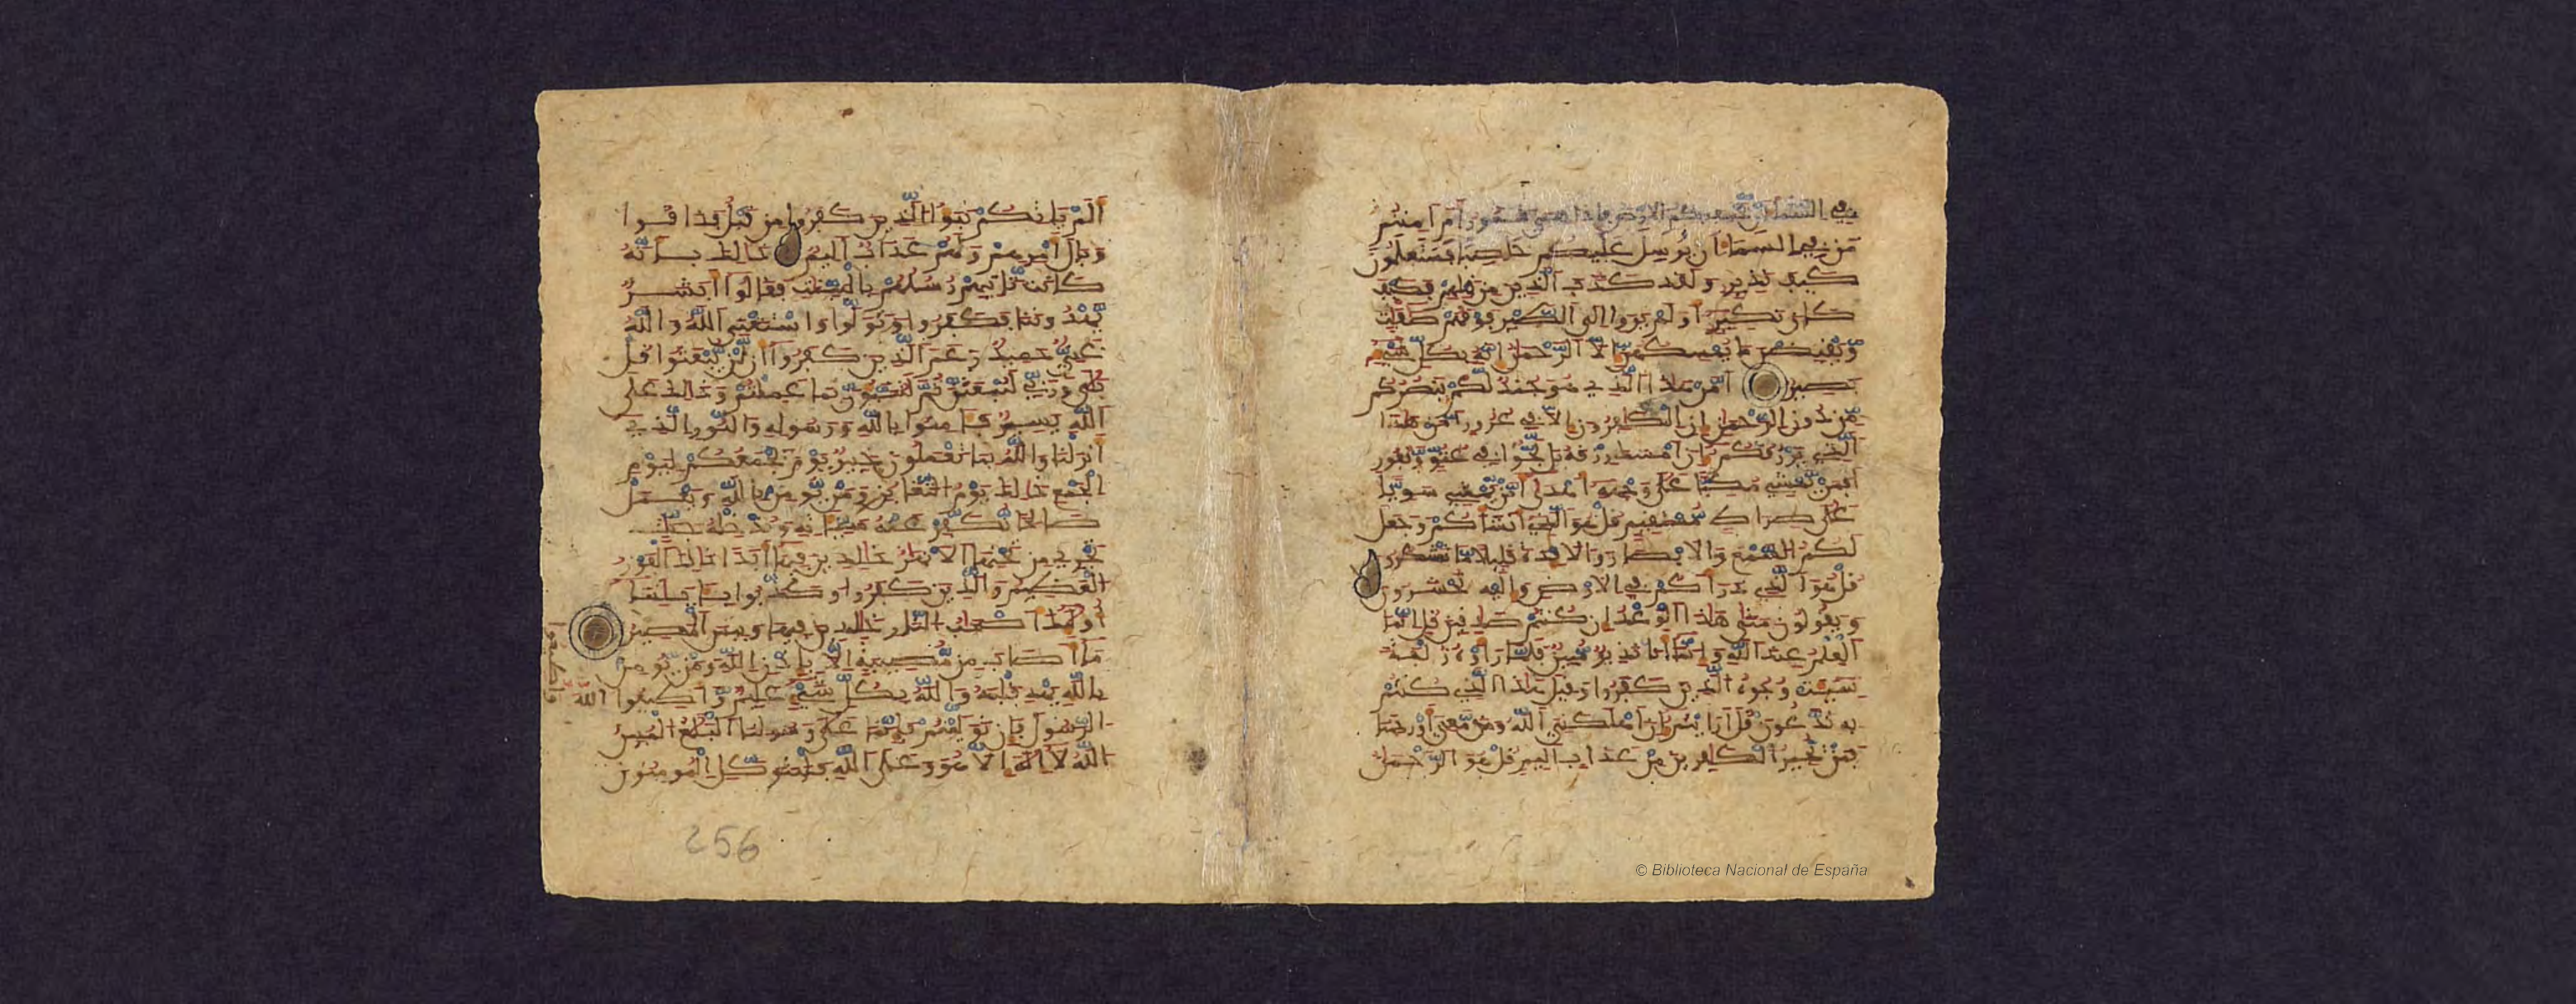 في السماء ان يخسف بكم الارض فاذا هي تمور ام امنتم
من في السماء ان يرسل عليكم حاصبا فستعلمون
كيف نذير ولقد كذب الذين من قبلهم فكيف
كان نكير اولم يروا الى الطير فوقهم صفت
ويقبضن ما يمسكهن الا الرحمن انه بكل شيء
بصير امن هذا الذي هو جند لكم ينصركم
من دون الرحمن ان الكافرون الا في غرور امن هذا
الذي يرزقكم ان امسك رزقه بل لجوا في عتو ونفور
افمن يمشي مكبا على وجهه اهدى امن يمشي سويا
على صراط مستقيم قل هو الذي انشاكم وجعل
لكم السمع والابصار والافدة قليلا ما تشكرون
قل هو الذي ذراكم في الارض واليه تحشرون
ويقولون متى هاذا الوعد ان كنتم صادقين قل انما
العلم عند الله وانما انا نذير مبين فلما راوه زلفة
سيئت وجوه الذين كفروا وقيل هاذا الذي كنتم
به تدعون قل ارايتم ان اهلكني الله ومن معي او رحمنا
فمن يجير الكافرين من عذاب اليم قل هو الرحمن
الم ياتكم نبؤا الذين كفروا من قبل فذاقوا
وبال امرهم ولهم عذاب اليم ذالك بانه
كانت تاتيهم رسلهم بالبينت فقالوا ابشر
يهدوننا فكفروا وتولوا واستغنى الله والله
غني حميد زعم الذين كفروا ان لن يبعثوا قل
بلى وربي لتبعثن ثم لتنبون بما عملتم وذالك على
الله يسير فامنوا بالله ورسوله والنور الذي
انزلنا والله بما تعملون خبير يوم يجمعكم ليوم
الجمع ذالك يوم التغابن ومن يومن بالله ويعمل
صالحا نكفر عنه سيئاته وندخله جنت
تجري من تحتها الانهر خالدين فيها ابدا ذالك الفوز
العظيم والذين كفروا وكذبوا باياتنا
اولئك اصحاب النار خالدين فيها وبيس المصير
ما اصاب من مصيبة الا باذن الله ومن يومن
بالله يهد قلبه والله بكل شيء عليم واطيعوا الله
الرسول فان توليتم فانما على رسولنا البلغ المبين
الله لا اله الا هو وعلى الله فليتوكل المومنون
256
© Biblioteca Nacional de España